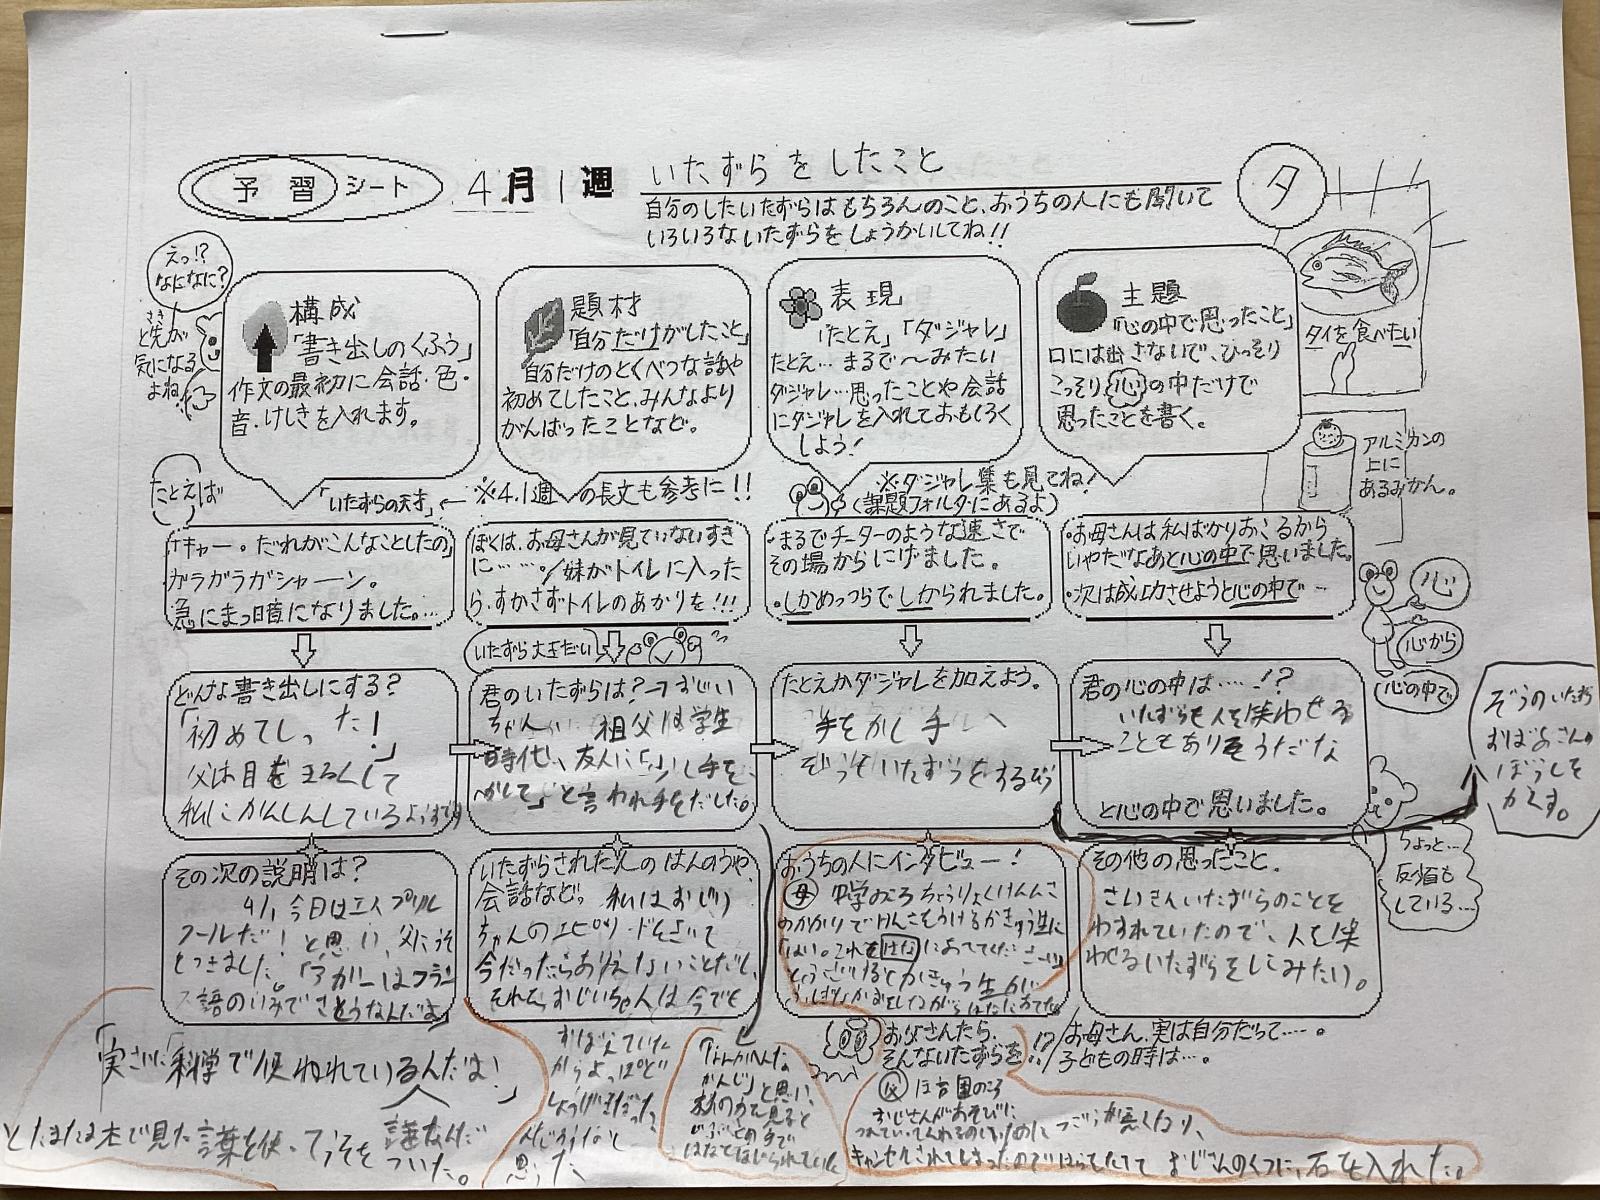 予習シート 4月1週 いたずらをしたこと
自分のしたいたずらはもちろんのこと、おうちの人にも聞いて
いろいろないたずらをしょうかいしてね!!
タ
タイを食べたい
アルミカンの
上に
あるみかん。
えっ!?
なになに?
と先が
さき
気になる
よね
構成
「書き出しのくふう」
作文の最初に会話・色・
音・けしきを入れます。
題材
「自分だけがしたこと」
自分だけのとくべつな話や
初めてしたこと、みんなより
がんばったことなど。
表現
「たとえ」「ダジャレ」
たとえ…まるで〜みたい
ダジャレ…思ったことや会話
にダジャレを入れておもしろく
しよう!
主題
「心の中で思ったこと」
口には出さないで、ひっそり
こっそり心の中だけで
思ったことを書く。
たとえば
「いたずらの天才」← ※4.1週の長文も参考に!!
※ダジャレ集も見てね!
(課題フォルダにあるよ)
「キャー。だれがこんなことしたの」
ガラガラガシャーン。
急にまっ暗になりました。…
ぼくは、お母さんが見ていないすき
に……。/妹がトイレに入った
ら、すかさずトイレのあかりを!!!
・まるでチーターのような速さで
その場からにげました。
・しかめっつらでしかられました。
・お母さんは私ばかりおこるから
いやだなあと心の中で思いました。
・次は成功させようと心の中で…
心
心から
心の中で
いたずら大王だい
どんな書き出しにする?
「初めてしった!」
父は目をまるくして
私にかんしんしているようです
君のいたずらは?→おじい
ちゃん 祖父は学生
時代、友人に「少し手を
かして」と言われ手をだした。
たとえかダジャレを加えよう。
手をかし手へ
ぞっぞいたずらをするぞう
君の心の中は……!?
いたずらも人を笑わせる
こともありそうだな
と心の中で思いました。
ぞうのいたずら
おばあさんの
ぼうしを
かくす。
その次の説明は?
4/1 今日はエイプリル
フールだ!と思い、父にうそ
をつきました。
語のいみでさとうなんだよ」
「実さいに科学で使われているんだよ!」
とたまたま本で見た言葉を使ってうそを
ついた。
いたずらされた人のはんのうや、
会話など。私はおじい
ちゃんのエピソードをきいて
今だったらありえないことだし、
それを、おじいちゃんは今でも
おぼえていた
からよっぽど
しょうげきだった
んだろうなと
思った
と思い、
おうちの人にインタビュー!
母 中学のころちょうりょくけんさ
のかかりでけんさをうけるかきゅう生に
「はい。これをはなにあててくださーい」
その他の思ったこと。
さいきんいたずらのことを
わすれていたので、人を笑
わせるいたずらをしてみたい。
ちょっと…
反省も
している…
お父さんたら、
そんないたずらを!?
お母さん、実は自分だって…。
子どもの時は…。
父 ほ育園のころ
おじさんがあそびに
つごうが悪くなり、
キャンセルされてしまったのではらをたてて おじさんのくつに、石を入れた。